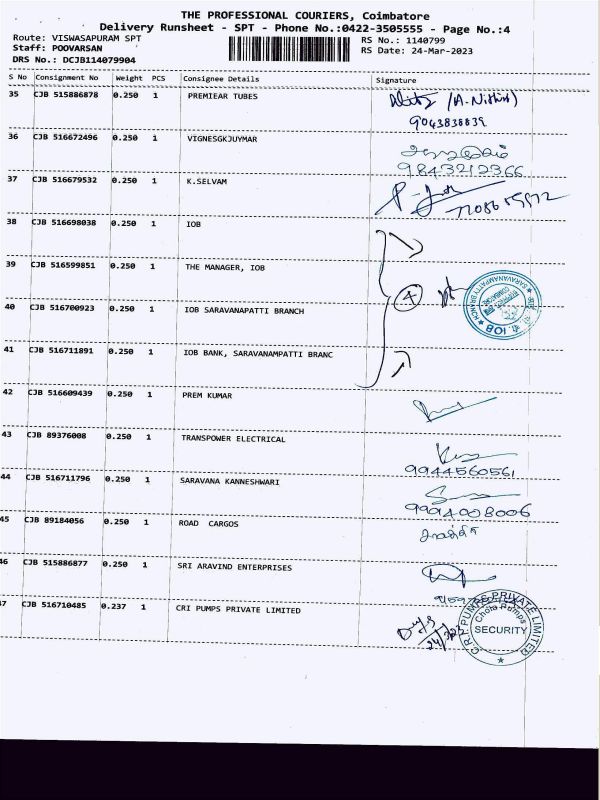 THE PROFESSIONAL COURIERS, Coimbatore
Delivery Runsheet - SPT - Phone No.:0422-3505555 - Page No.:4
Route: VISWASAPURAM SPT
RS No.: 1140799
Staff: POOVARSAN
RS Date: 24-Mar-2023
DRS No.: DCJB114079904
S No Consignment No Weight PCS Consignee Details Signature
35 CJB 515886878 0.250 1 PREMIEAR TUBES (A. Nithish)
9043838839
36 CJB 516672496 0.250 1 VIGNESGKJUYMAR
9843212366
37 CJB 516679532 0.250 1 K.SELVAM
38 CJB 516698038 0.250 1 IOB
39 CJB 516599851 0.250 1 THE MANAGER, IOB
4
40 CJB 516700923 0.250 1 IOB SARAVANAPATTI BRANCH
SARAVANAMPATTY BRANCH
IOB
41 CJB 516711891 0.250 1 IOB BANK, SARAVANAMPATTI BRANC
42 CJB 516609439 0.250 1 PREM KUMAR
43 CJB 89376008 0.250 1 TRANSPOWER ELECTRICAL
9944560561
44 CJB 516711796 0.250 1 SARAVANA KANNESHWARI
9994008006
45 CJB 89184056 0.250 1 ROAD CARGOS
46 CJB 515886877 0.250 1 SRI ARAVIND ENTERPRISES
47 CJB 516710485 0.237 1 CRI PUMPS PRIVATE LIMITED
24/3/23
C.R.I. PUMPS PRIVATE LIMITED
Chola Pumps
SECURITY